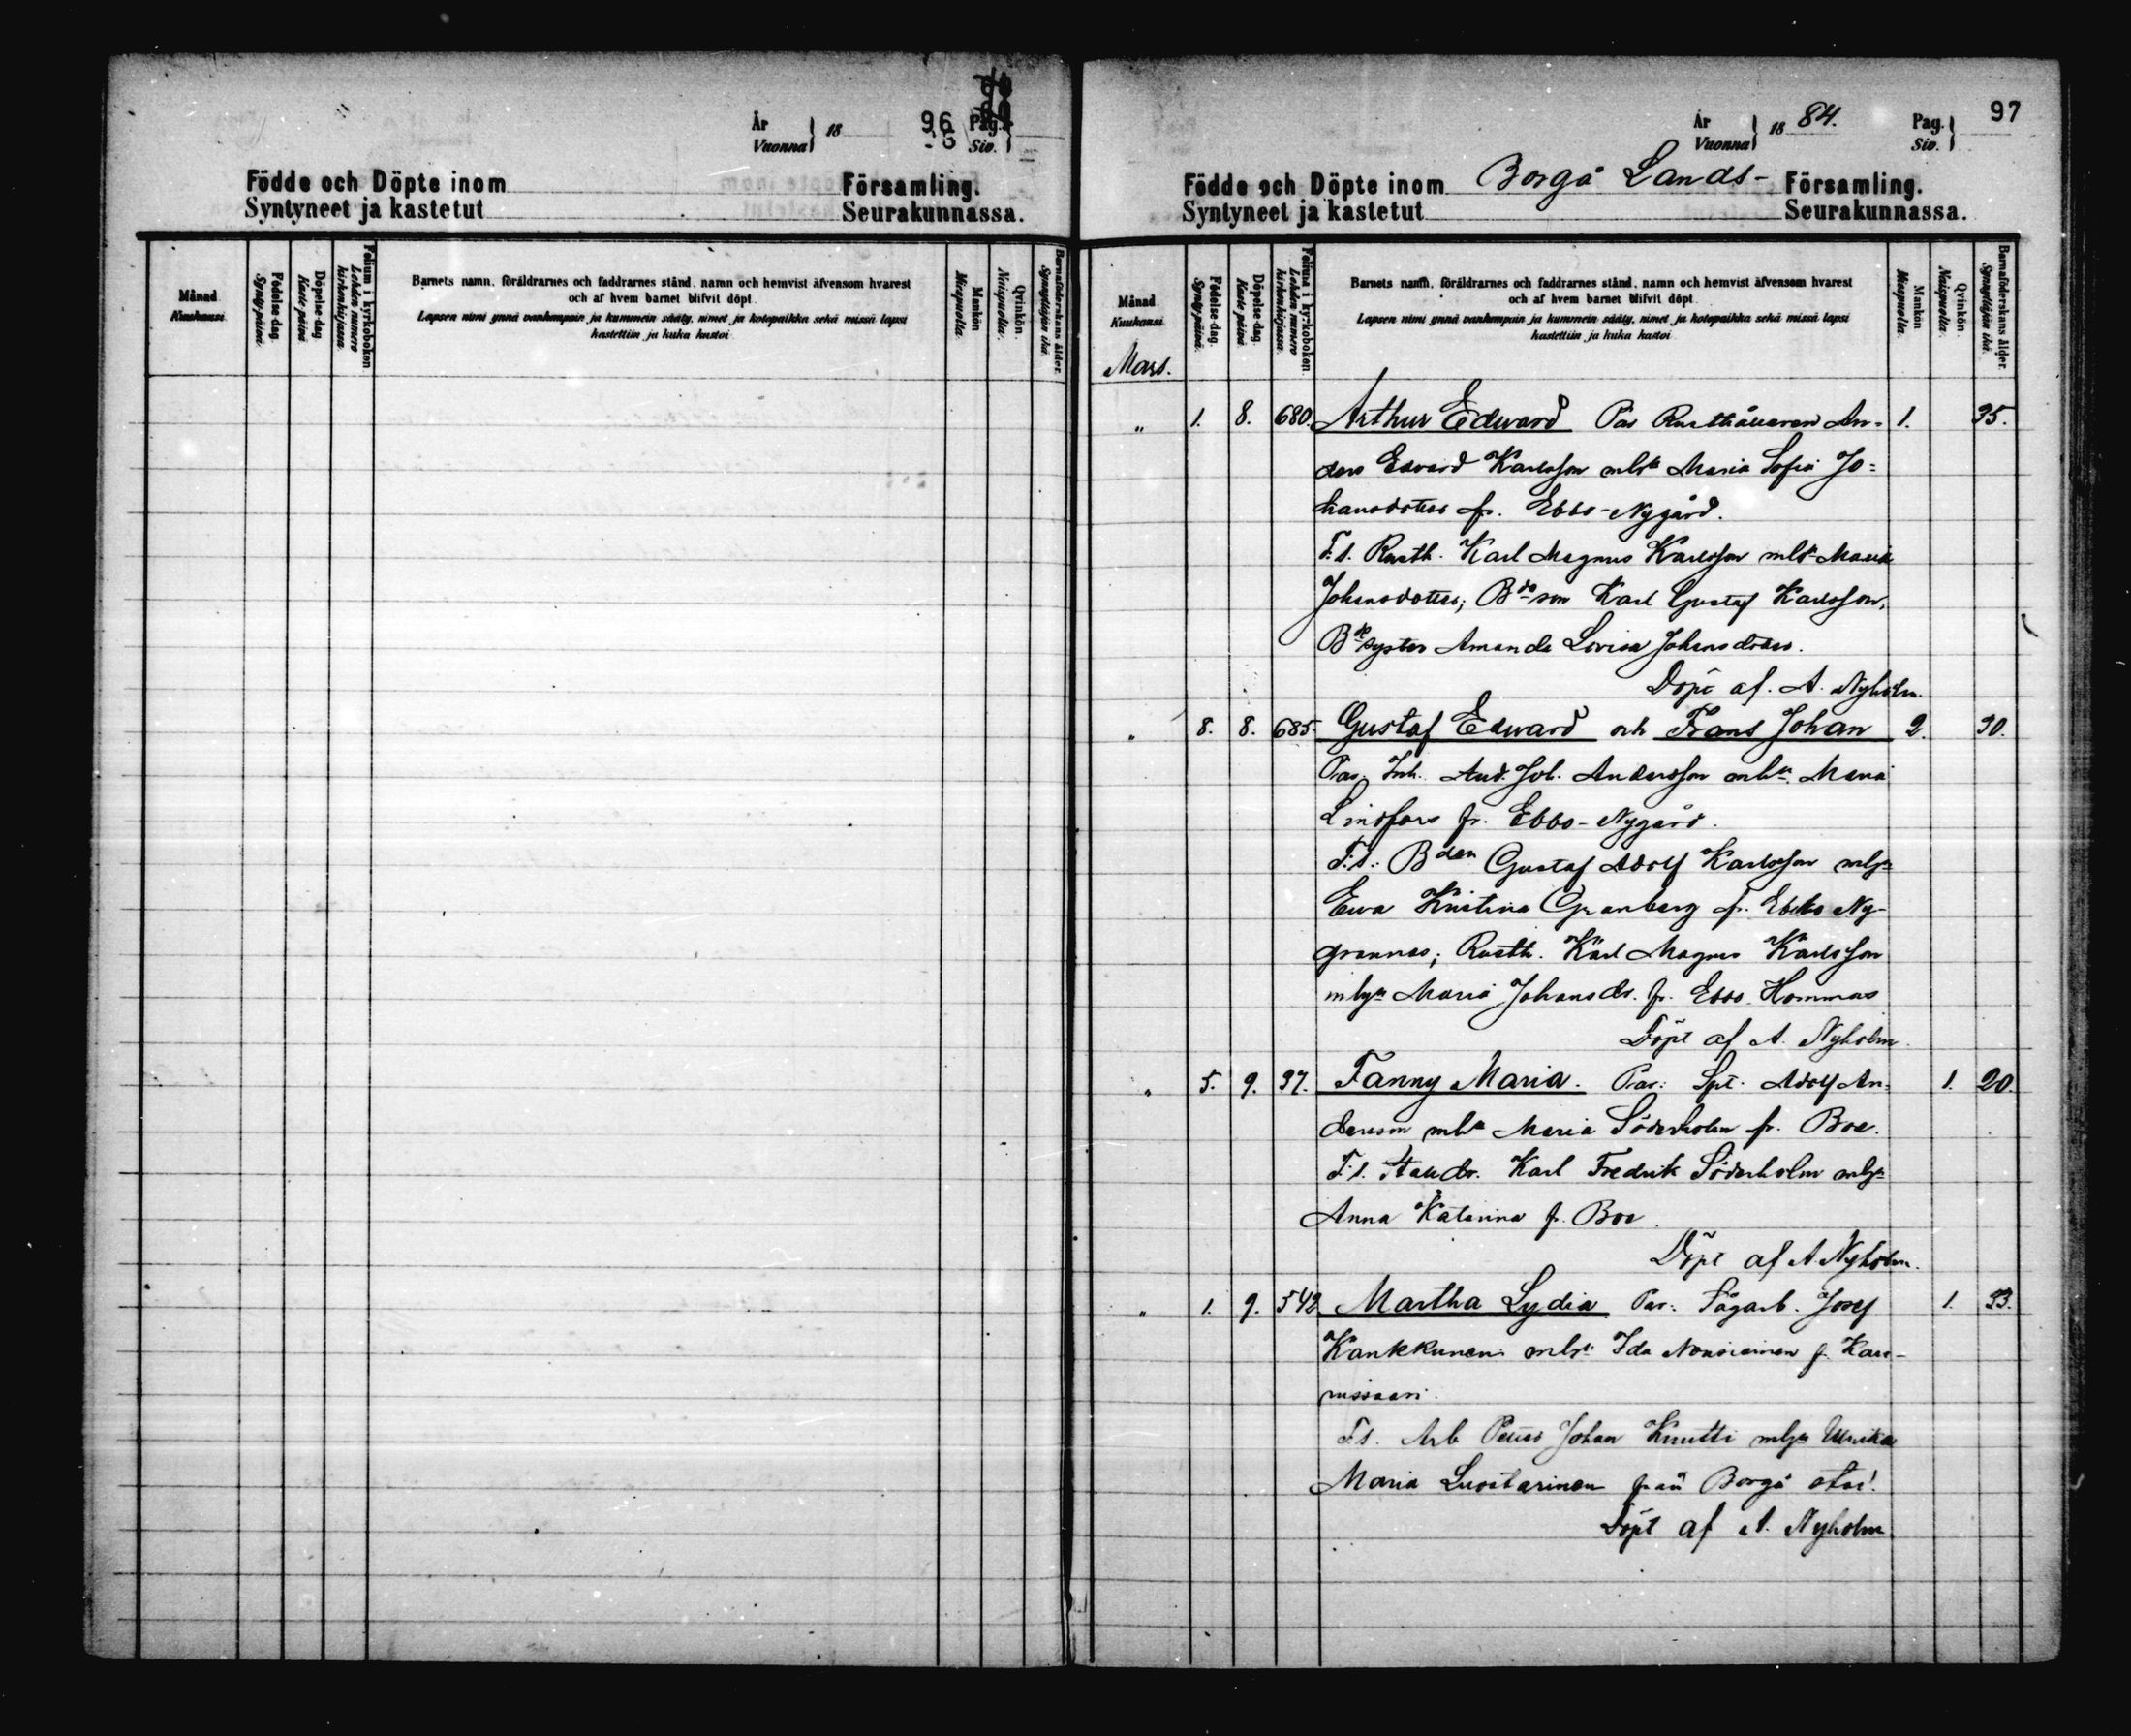 År
Vuonna
18
96
Pag.
Siv.
Födde och Döpte inom Församling.
Syntyneet ja kastetut Seurakunnassa.
Månad.
Kuukausi.
Födelse-dag.
Synty-päivä.
Döpelse-dag.
Kaste-päivä.
Folium i kyrkoboken
Lehden numero kirkonkirjassa.
Barnets namn, föräldrarnes och faddrarnes stånd, namn och hemvist äfvensom hvarest
och af hvem barnet blifvit döpt.
Lapsen nimi ynnä vanhempain ja kummein sääty, nimet ja kotopaikka sekä missä lapsi
kastettiin ja kuka kastoi
Mankön
Miespuolta.
Qvinkön.
Naispuolta.
Barnaföderskans ålder.
Synnyttäjän ikä.
År
Vuonna
1884.
Pag.
Siv.
97
Födde och Döpte inom Borgå Lands- Församling.
Syntyneet ja kastetut Seurakunnassa.
Månad.
Kuukausi.
Födelse-dag.
Synty-päivä.
Döpelse-dag.
Kaste-päivä.
Folium i kyrkoboken.
Lehden numero kirkonkirjassa.
Barnets namn, föräldrarnes och faddrarnes stånd, namn och hemvist äfvensom hvarest
och af hvem barnet blifvit döpt.
Lapsen nimi ynnä vanhempain ja kummein sääty, nimet ja kotopaikka sekä missä lapsi
kastettiin ja kuka kastoi
Mankön
Miespuolta.
Qvinkön.
Naispuolta.
Barnaföderskans ålder.
Synnyttäjän ikä.
Mars.
" 1. 8. 680. Arthur Edward Par Rusthållaren An= 1. 35.
ders Edvard Karlsson mhu Maria Sofia Jo=
hansdotter fr. Ebbo-Nygård.
F.d. Rusth. Karl Magnus Karlsson Maria
Johansdotter; Bdeson Karl Gustaf Karlsson,
Bdesyster Amanda Lovisa Johansdotter.
Döpt af. A. Nyholm.
" 8. 8. 685. Gustaf Edward och Frans Johan 2. 30.
Par. Inh. And. Joh. Andersson mhu. Maria
Lindfors fr. Ebbo-Nygård.
F.d.: Bden Gustaf Adolf Karlsson
Ewa Kristina Granberg fr. Ebbo Ny-
grannas; Rusth. Karl Magnus Karlsson
Maria Johansdr. fr. Ebbo Hommas
Döpt af A. Nyholm.
" 5. 9. 37. Fanny Maria. Par: Spt. Adolf An= 1. 20.
derson mhu Maria Söderholm fr. Boe.
F.d. Karl Fredrik Söderholm
Anna Katarina fr. Boe.
Döpt af A. Nyholm.
" 1. 9. 542 Martha Lydia Par: Sågarb. Josef 1. 33.
Kankkunen mhu Ida Nousiainen fr. Kar-
nissaari.
F.d. Arb Petter Johan Knutti Ulrika
Maria Luostarinen från Borgå stad.
Döpt af A. Nyholm.